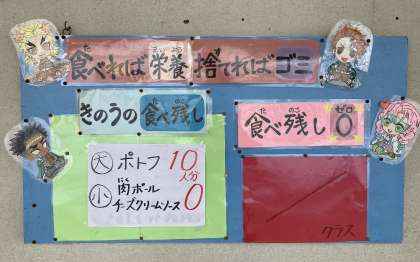 食べれば栄養捨てればゴミ
きのうの食べ残し
大 ポトフ 10人分
小 肉ボール
チーズクリームソース 0
食べ残し0
クラス